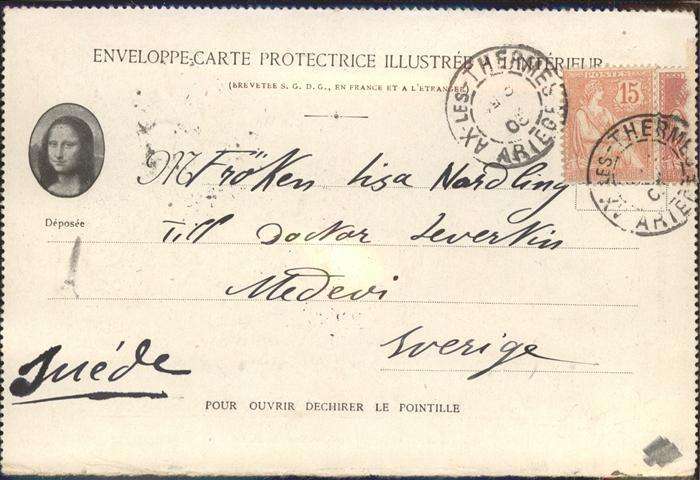 ENVELOPPE-CARTE PROTECTRICE ILLUSTRÉE L'INTÉRIEUR
(BREVETÉE S. G. D. G., EN FRANCE ET A L'ETRANGER)
AX-LES-THERMES
ARIEGE
POSTES
15
AX-LES-THERMES
ARIEGE
Déposée
M Fröken Lisa Nordling
Till Doctor Leverkin
Medevi
Sverige
Suéde
POUR OUVRIR DECHIRER LE POINTILLE